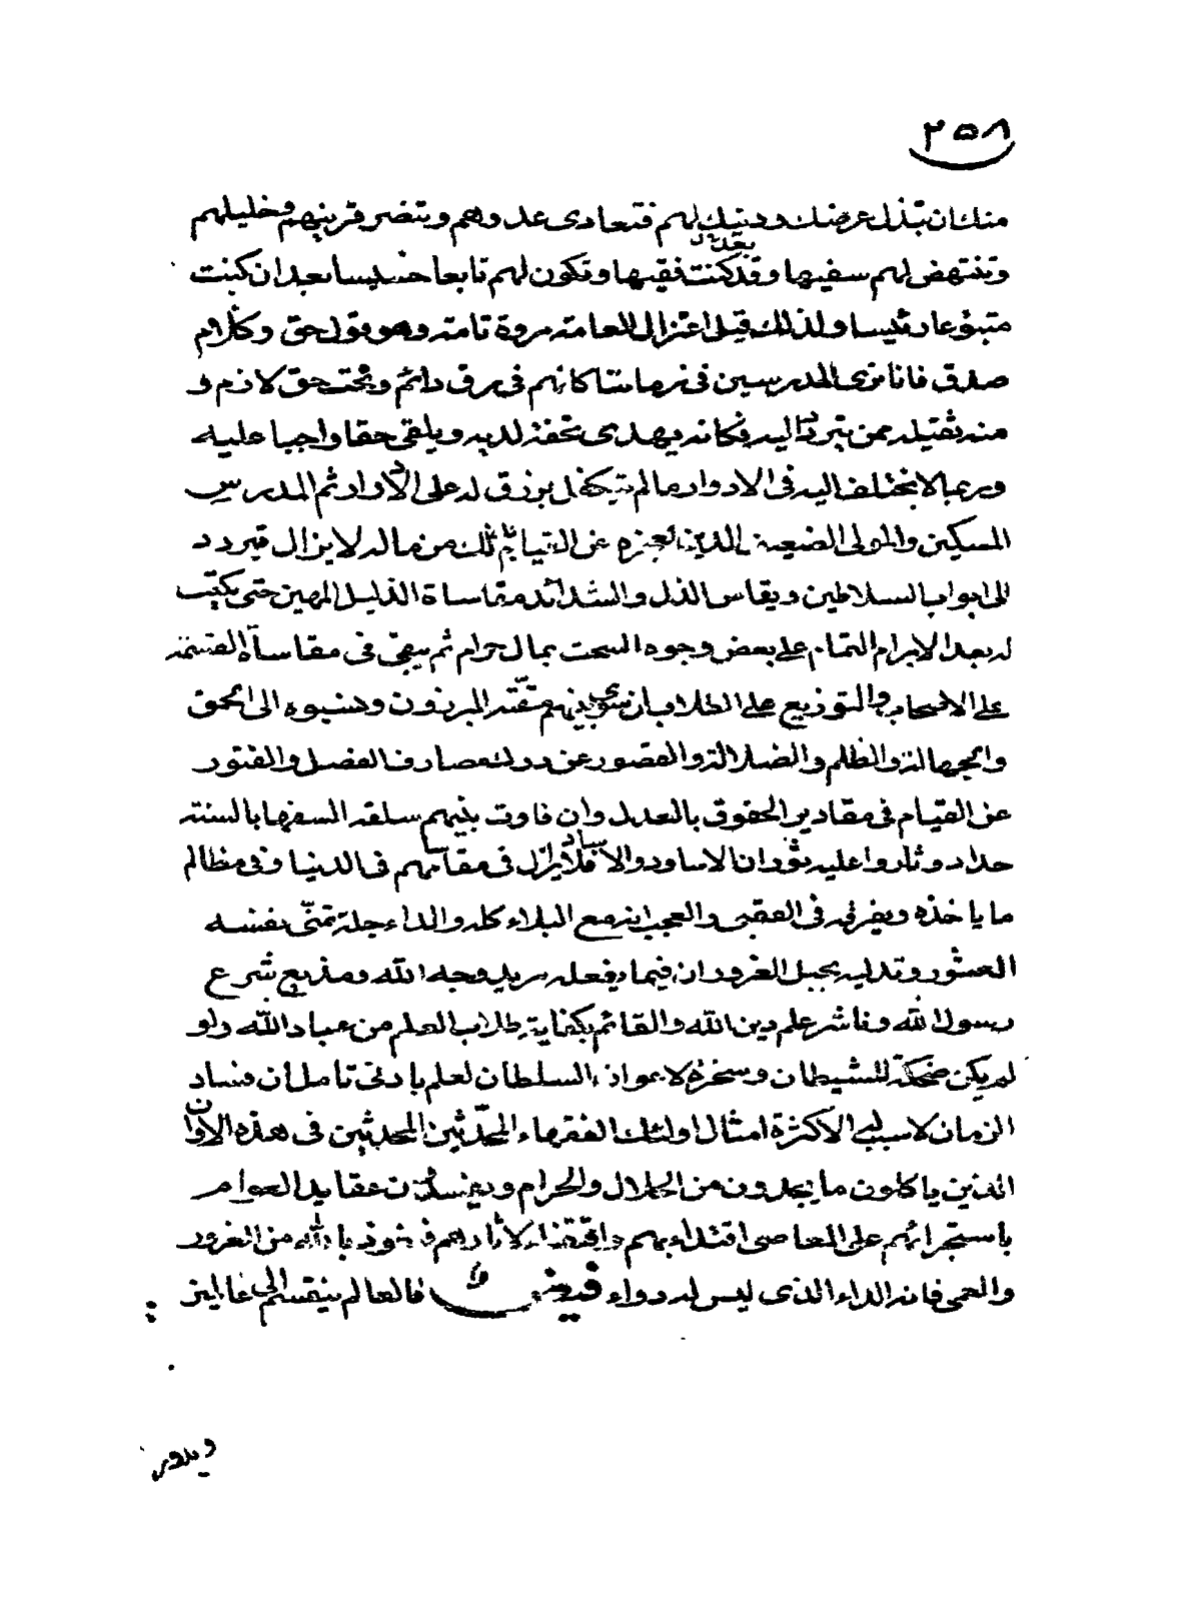 ٢٥٨
منك ان تبذل عرضك ودينك لهم فتعادى عدوهم وتنصر قرينهم وخليلهم
وتنتهض لهم سفيها وقد كنت فقيها وتكون لهم تابعا خسيسا بعد ان كنت
متبوعا رئيسا ولذلك قيل اعتزال العامة مروة تامة وهو قول حق وكلام
صدق فانا نرى المدرسين فى زماننا كانهم فى رق دائم وتحت حق لازم و
منة ثقيلة ممن يتردد اليه فكانه يهدى تحفة لديه ويلقى حقا واجبا عليه
وربما لا يختلف اليه فى الادوار ما لم يتكفل برزق له على الادرار ثم المدرس
المسكين والمولى الضعيف الدين لعجزه عن القيام بذلك من ماله لا يزال يتردد
الى ابواب السلاطين ويقاسى الذل والشدائد مقاساة الذليل المهين حتى يكتب
له بعد الابرام التمام على بعض وجوه السحت بمال حرام ثم يبقى فى مقاساة القسمة
على الاصحاب والتوزيع على الطلاب ان سوى بينهم مقته المبرزون ونسبوه الى الحمق
والجهالة والظلم والضلالة والقصور عن درك مصارف الفضل والفتور
عن القيام فى مقادير الحقوق بالعدل وان فاوت بينهم سلقه السفها بالسنة
حداد وثاروا عليه ثوران الاساود والاساد فلا يزال فى مقاساتهم فى الدنيا وفى مظالم
ما ياخذه ويفرقه فى العقبى والعجب انه مع البلاء كله والداء جلة تمنى نفسه
العثور وتدليه بحبل الغرور ان فيما يفعله مريد وجه الله ومذيع شرع
رسول الله وناشر علم دين الله والقائم بكفاية طلاب العلم من عباد الله ولو
لم يكن ضحكة للشيطان وسخرة لاعوان السلطان لعلم بادنى تامل ان فساد
الزمان لا سبب له الا كثرة امثال اولئك الفقهاء المحدثين المحدثين فى هذه الاوان
الذين ياكلون ما يجدون من الحلال والحرام ويفسدون عقايد العوام
باستجرائهم على المعاصى اقتداء بهم واقتفاء لاثارهم فنعوذ بالله من الغرور
والعمى فانه الداء الذى ليس له دواء فيض فالعالم ينقسم الى عالم